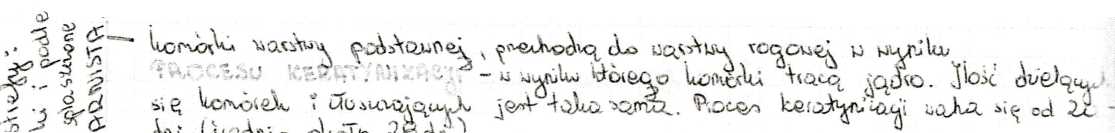 strefy:
ki i podle
spłaszczone
ARNISTA
— komórki warstwy podstawnej, przechodzą do warstwy rogowej w wyniku
PROCESU KERATYNIZACJI - w wyniku którego komórki tracą jądro. Ilość dzielących
się komórek i złuszczających jest taka sama. Proces keratynizacji waha się od 2
dni (średnio około 28 dni)